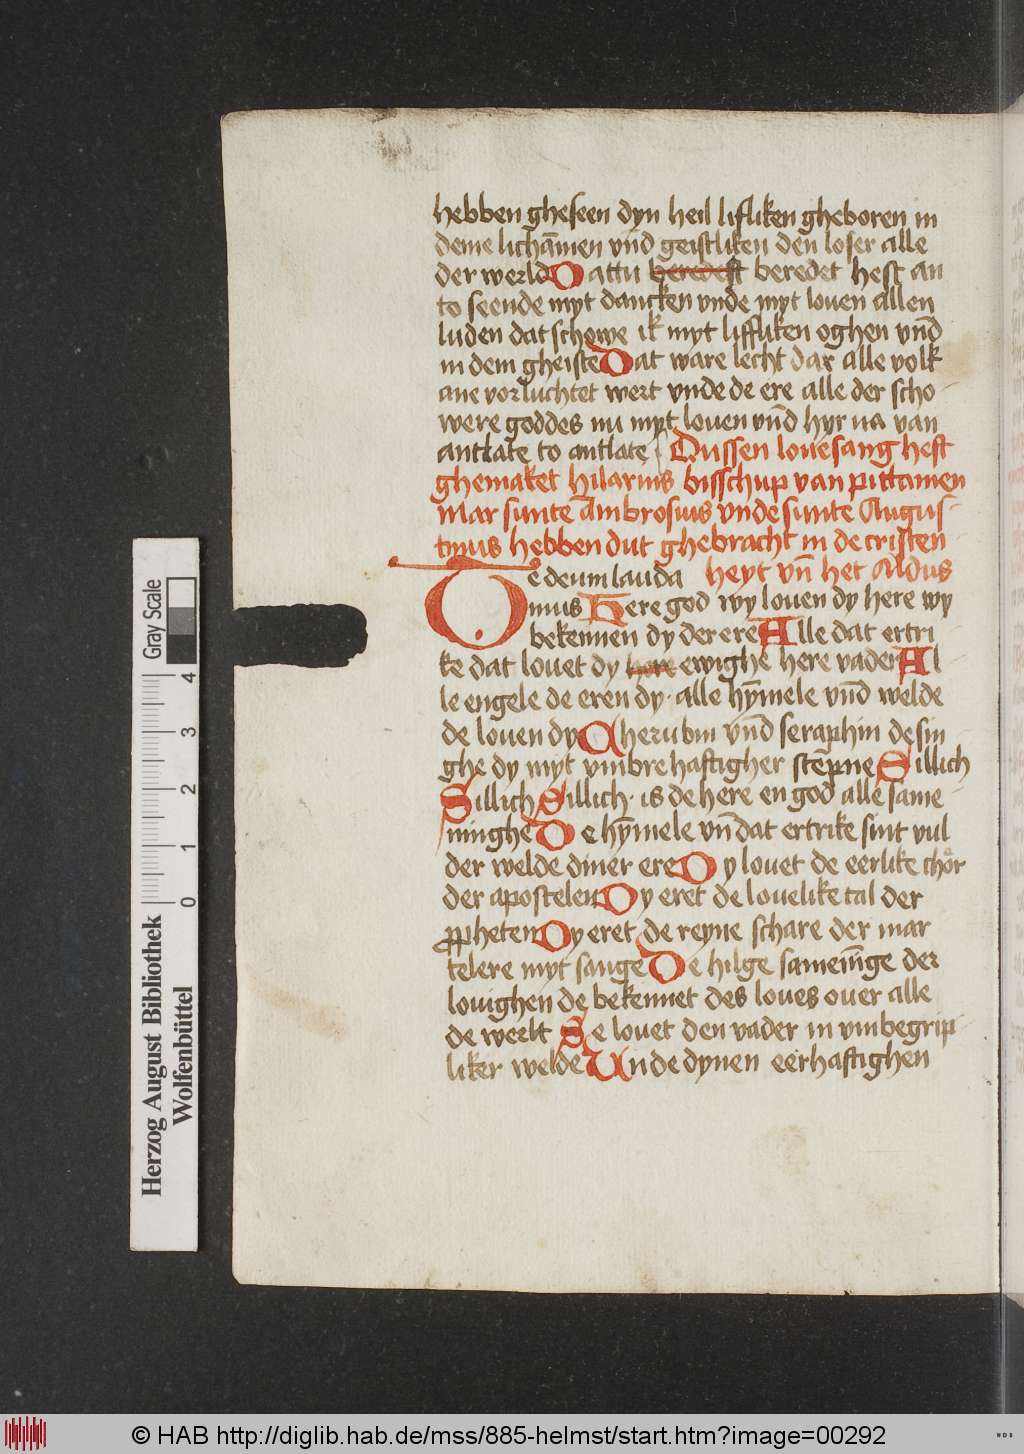 hebben gheseen dyn heil lifliken gheboren in
deme lichām̄en vn̄d geistliken den loser alle
der werld Dattu beredest beredet hest an
to seende myt dancken vnde myt louen allen
luden dat schowe ik myt liffliken oghen vn̄d
in dem gheiste Dat ware lecht dar alle volk
ane vorluchtet wert vnde de ere alle der scho-
were goddes nu myt louen vn̄d hyr na van
antlate to antlate Dussen louesang heft
ghemaket hilarius bisschup van pittamen
Mar sunte Ambrosius vnde sunte Augus-
tinus hebben dut ghebracht in de cristen
heyt vn̄ het Aldus
Te deum lauda
mus Here god wy louen dy here wy
bekennen dy der ere Alle dat ertri
ke dat louet dy here ewighe here vader Al
le engele de eren dy· alle hȳmele vn̄d welde
de louen dy Cherubin vn̄d seraphin de sin
ghe dy myt vmbrehaftigher stēpne Sillich
Sillich Sillich· is de here en god alle same-
ninghe De hȳmele vn̄ dat ertrike sint vul
der welde diner ere Dy louet de eerlike chor
der apostelen Dy eret de louelike tal der
ꝓpheten Dy eret de reyne schare der mar
telere myt sange De hilge sameīnge der
louighen de bekennet des loues ouer alle
de werlt Se louet den vader in vmbegrip-
liker welde Unde dynen eerhaftighen
Gray Scale
4
3
2
1
0
Herzog August Bibliothek
Wolfenbüttel
© HAB http://diglib.hab.de/mss/885-helmst/start.htm?image=00292